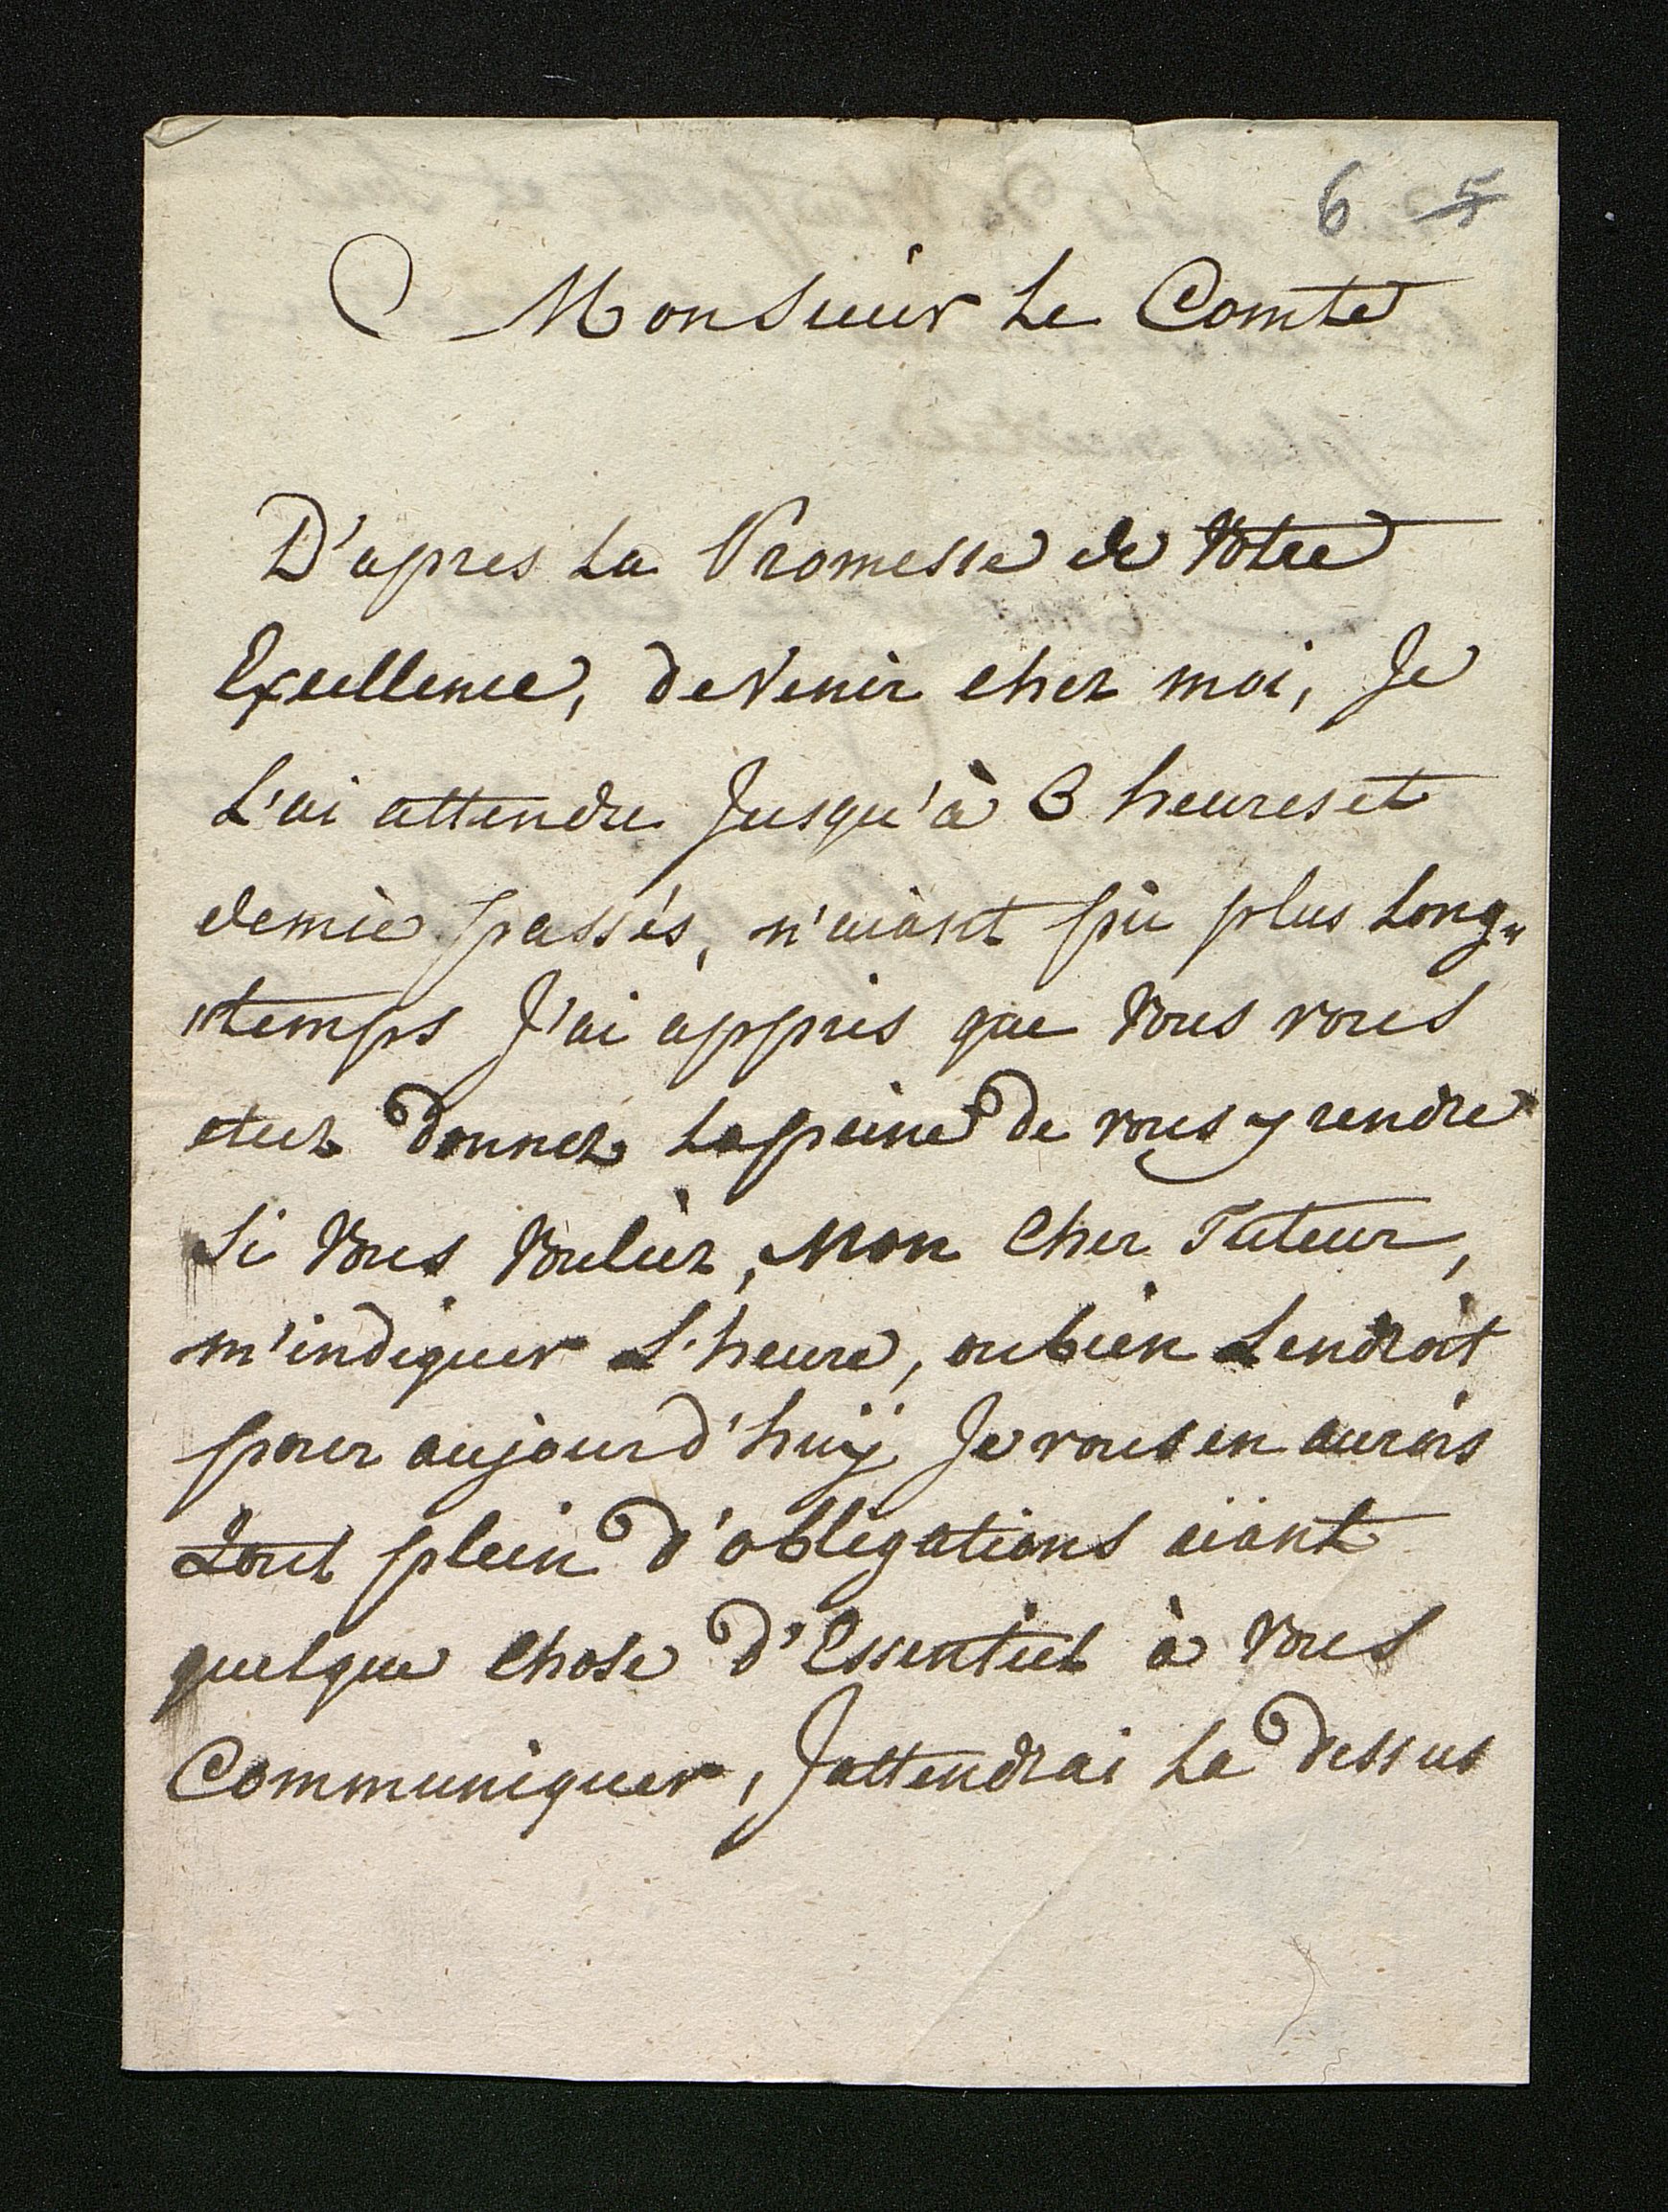 6 5
Monsieur Le Comte
D'apres La Promesse de Votre
Excellence, de Venir chez moi, Je
L'ai attendu Jusqu'à 3 heures et
demie passés, n'aiant pû plus Long„
„temps J'ai appris que Vous vous
etiez donnez La peine de vous y rendre
Si Vous Vouliez, Mon Cher Tuteur,
m'indiquer L'heure, ou bien Lendroit
pour aujourd'huÿ Je vous en aurois
tout plein d'obligations aiant
quelque Chose d'Essentiel à Vous
Communiquer, Jattendrai La dessus